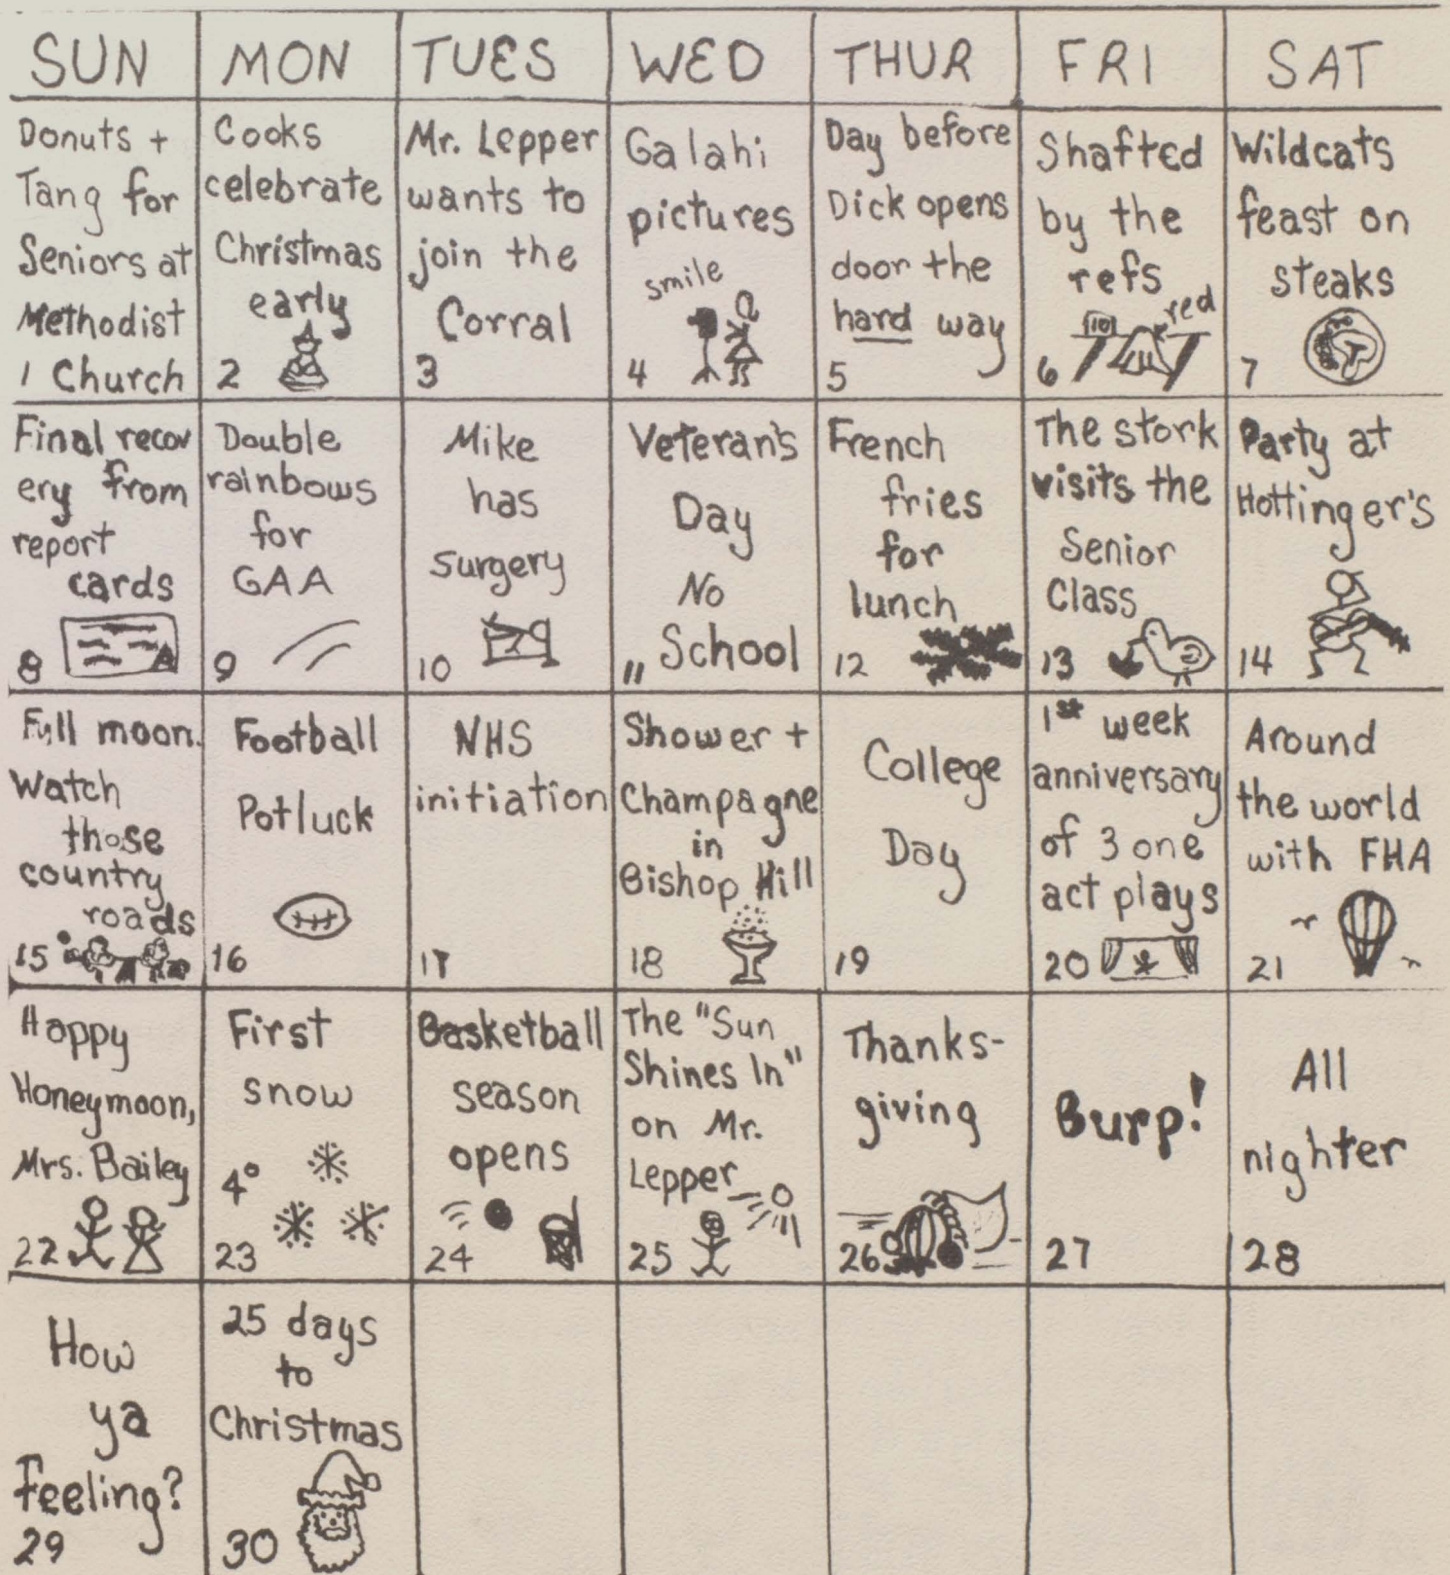 SUN
MON
TUES
WED
THUR
FRI
SAT
Donuts +
Tang for
Seniors at
Methodist
1 Church
Cooks
celebrate
Christmas
early
2
Mr. Lepper
wants to
join the
Corral
3
Galahi
pictures
smile
4
Day before
Dick opens
door the
hard way
5
Shafted
by the
refs
red
10
6
Wildcats
feast on
steaks
7
Final recov
ery from
report
cards
8
Double
rainbows
for
GAA
9
Mike
has
surgery
10
Veteran's
Day
No
School
11
French
fries
for
lunch
12
The stork
visits the
Senior
Class
13
Party at
Hottinger's
14
Full moon.
Watch
those
country
roads
15
Football
Potluck
16
NHS
initiation
17
Shower +
Champagne
in
Bishop Hill
18
College
Day
19
1st week
anniversary
of 3 one
act plays
20
Around
the world
with FHA
21
Happy
Honeymoon,
Mrs. Bailey
22
First
snow
4°
23
Basketball
season
opens
24
The "Sun
Shines In"
on Mr.
Lepper
25
Thanks-
giving
26
Burp!
27
All
nighter
28
How
ya
Feeling?
29
25 days
to
Christmas
30